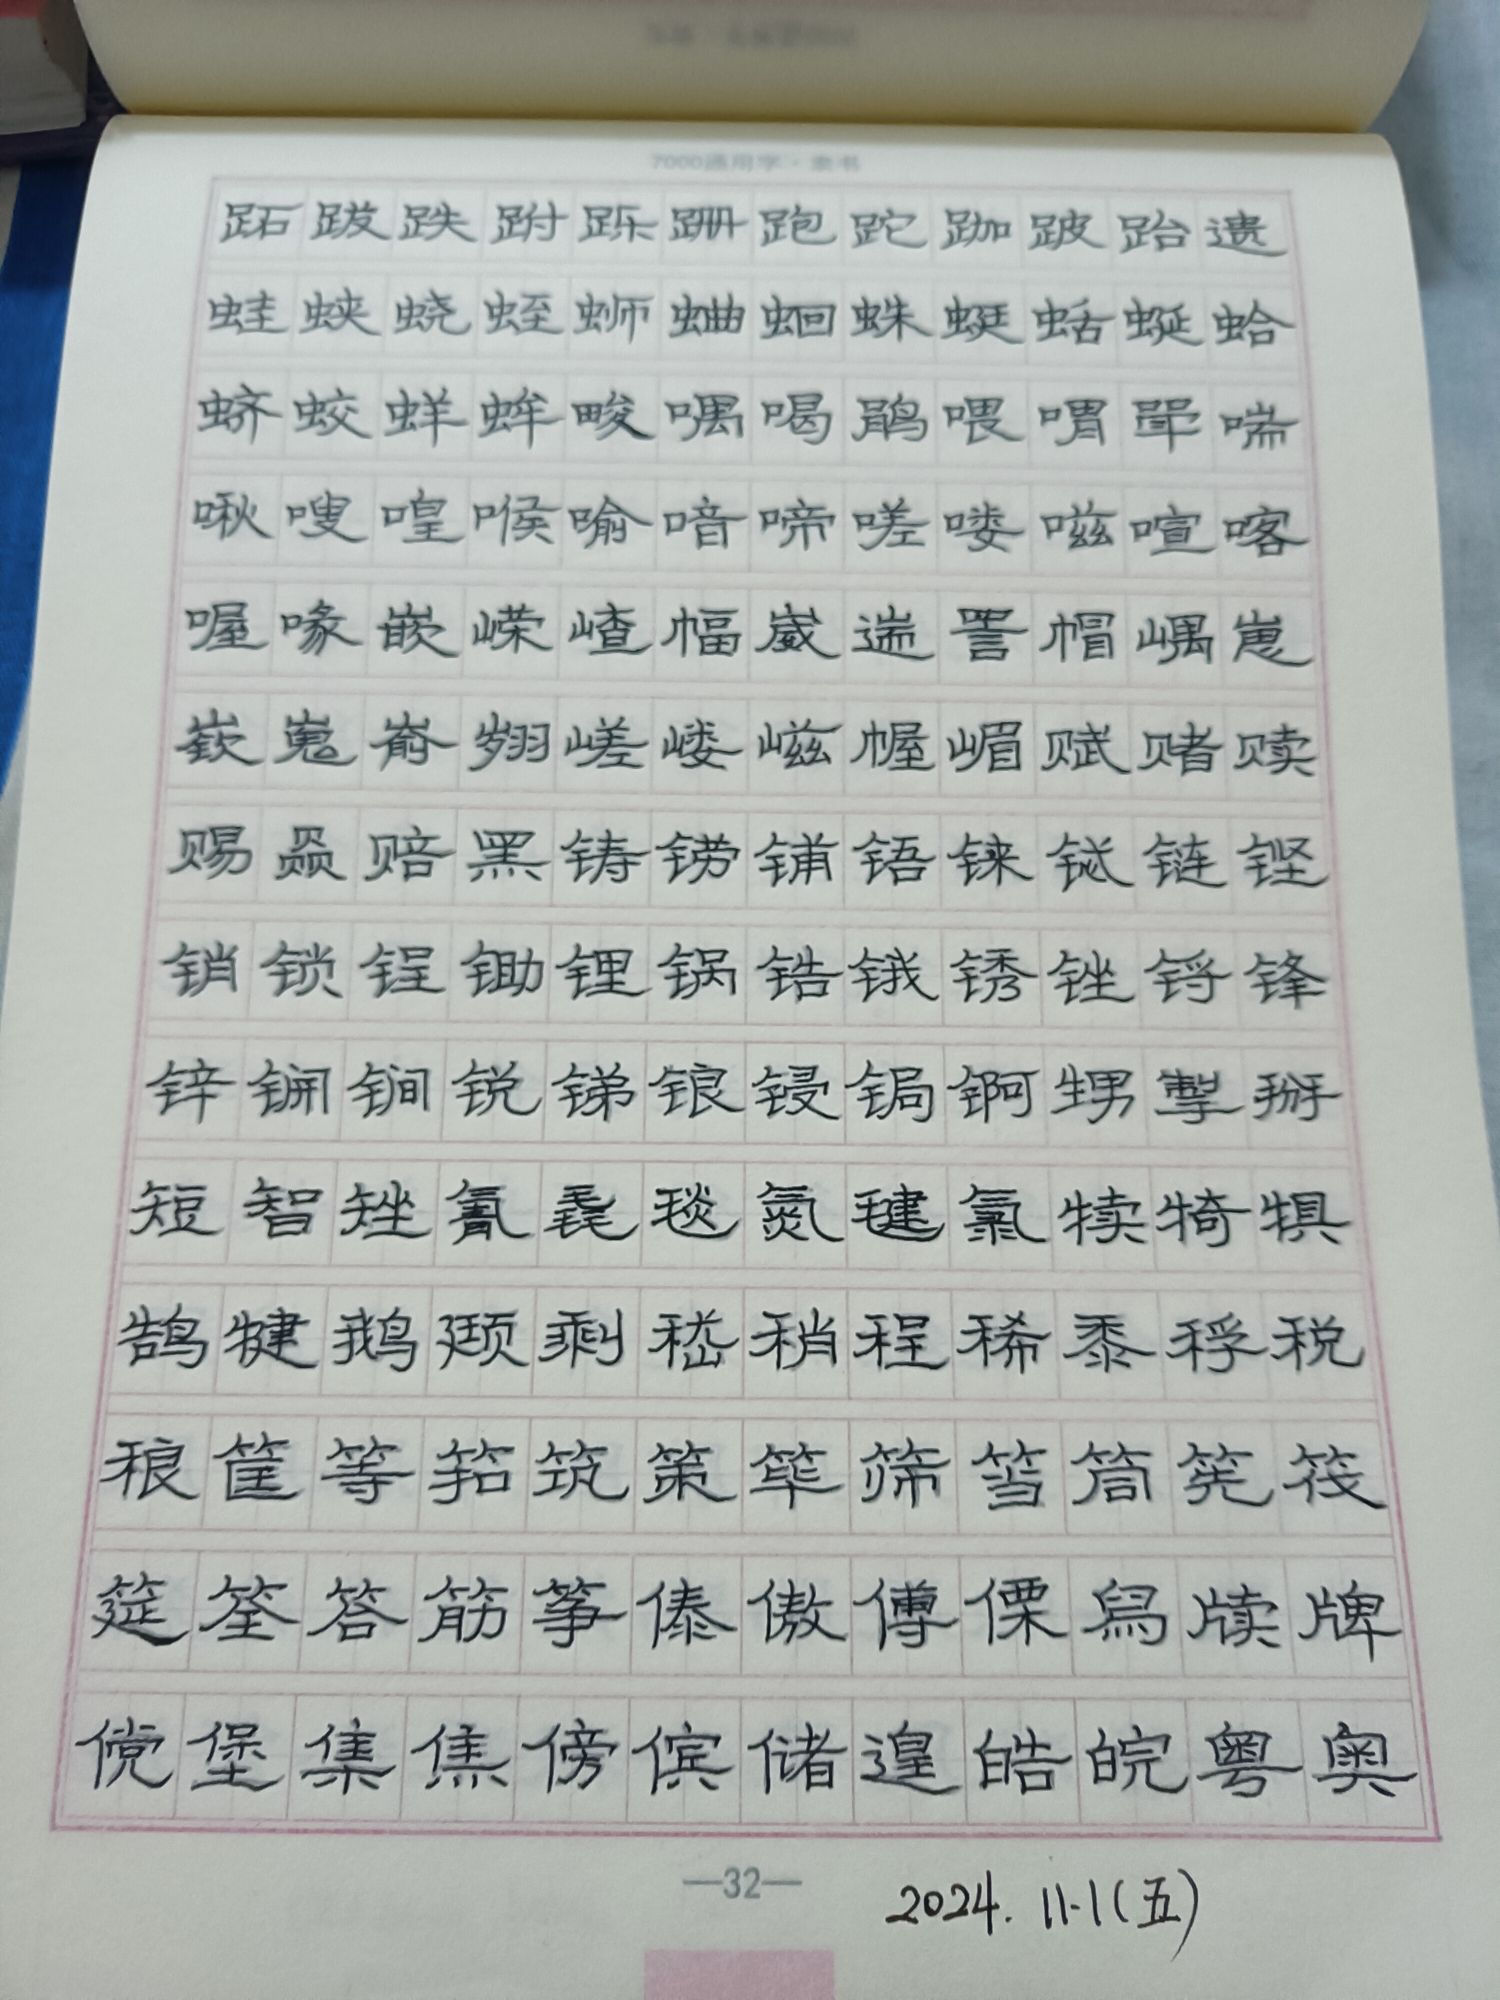 7000通用字·隶书
跖跋跌跗跞跚跑跎跏跛跆遗
蛙蛱蛲蛭蛳蛐蛔蛛蜓蛞蜒蛤
蛴蛟蛘蛑畯喁喝鹃喂喟斝喘
啾嗖喤喉喻喑啼嗟喽嗞喧喀
喔喙嵌嵘嵖幅崴遄詈帽嵎崽
嵚嵬嵛翙嵯嵝嵫幄嵋赋赌赎
赐赑赔黑铸铹铺铻铼铽链铿
销锁锃锄锂锅锆锇锈锉锊锋
锌锎锏锐锑锒锓锔锕甥掣掰
短智矬氰毳毯氮毽氯犊犄犋
鹄犍鹅颋剩嵇稍程稀黍稃税
稂筐等筘筑策筚筛筜筒筅筏
筵筌答筋筝傣傲傅傈舄牍牌
傥堡集焦傍傧储遑皓皖粤奥
—32—
2024.11.1(五)